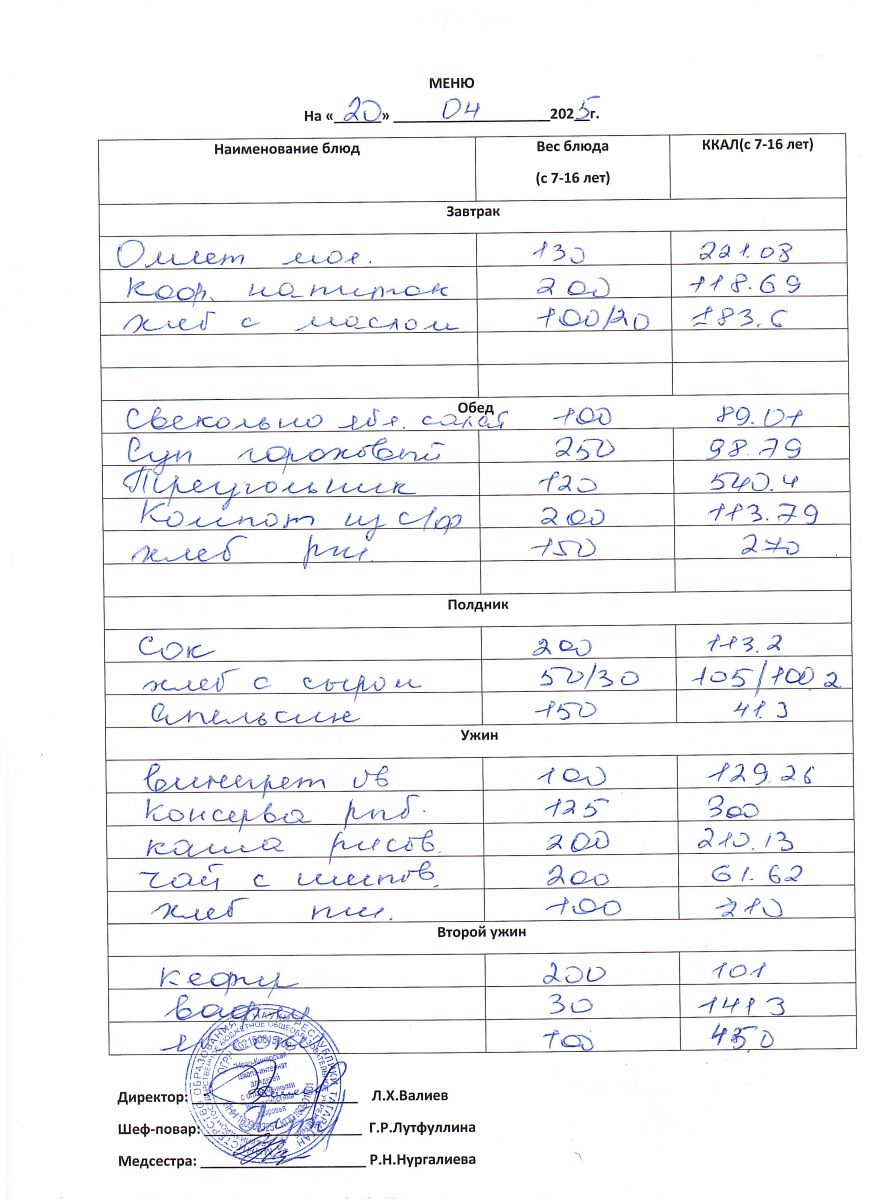 МЕНЮ
На «20» 04 2025 г.
Наименование блюд Вес блюда (с 7-16 лет) ККАЛ(с 7-16 лет)
Завтрак
Омлет мол. 130 221.08
Коф. напиток 200 118.69
хлеб с маслом 100/20 183.6
Обед
Свекольно ябл. салат 100 89.01
Суп гороховый 250 98.79
Треугольник 120 540.4
Компот из с/ф 200 113.79
хлеб рж. 150 270
Полдник
Сок 200 113.2
хлеб с сыром 50/30 105/100.2
Апельсин 150 41.3
Ужин
Винегрет ов 100 129.26
Консерва рыб. 125 300
каша рисов. 200 210.13
чай с шипов. 200 61.62
хлеб пш. 100 210
Второй ужин
кефир 200 101
вафли 30 141 3
100 45.0
Директор: Л.Х.Валиев
Шеф-повар: Г.Р.Лутфуллина
Медсестра: Р.Н.Нургалиева